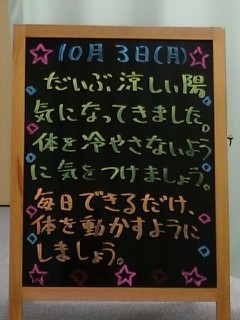 10月3日(月)
だいぶ涼しい陽
気になってきました。
体を冷やさないよう
に気をつけましょう。
毎日できるだけ、
体を動かすように
しましょう。